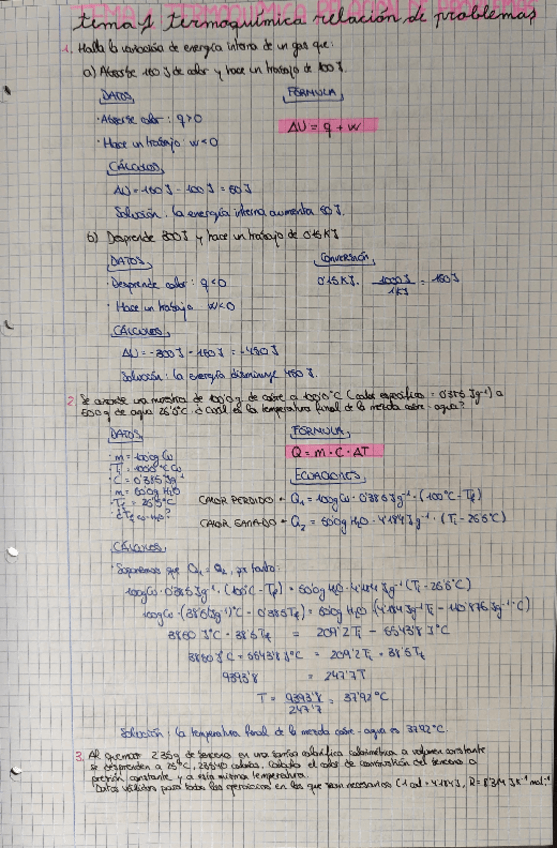 tema 1 termoquímica relación de problemas
1. Halla la variación de energía interna de un gas que:
a) Absorbe 150 J de calor y hace un trabajo de 100 J.
DATOS FÓRMULA
· Absorbe calor: q>0
ΔU = q + w
· Hace un trabajo: w<0
CÁLCULOS
ΔU = 150 J - 100 J = 50 J
Solución: la energía interna aumenta 50 J.
b) Desprende 300 J y hace un trabajo de 0'15 KJ
DATOS CONVERSIÓN
· Desprende calor: q<0 0'15 KJ · 1000 J / 1 KJ = 150 J
· Hace un trabajo w<0
CÁLCULOS
ΔU = -300 J - 150 J = -450 J
Solución: la energía disminuye 450 J.
2. Se añade una muestra de 100'0 g de cobre a 100'0 °C (calor específico = 0'385 Jg⁻¹) a
50'0 g de agua 26'5°C. ¿cuál es la temperatura final de la mezcla cobre-agua?
DATOS FÓRMULA
· m = 100 g Cu Q = m · C · ΔT
· C = 0'385 Jg⁻¹ ECUACIONES
CALOR PERDIDO - Q₁ = 100g Cu · 0'385 Jg⁻¹ · (100°C - Tf)
CALOR GANADO - Q₂ = 50'0g H₂O · 4'184 Jg⁻¹ · (Tf - 26'5°C)
CÁLCULOS
· Suponemos que Q₁ = Q₂, por tanto:
100g Cu · 0'385 Jg⁻¹ · (100°C - Tf) = 50'0g H₂O · 4'184 Jg⁻¹ (Tf - 26'5°C)
3850 J°C - 38'5Tf = 209'2 Tf - 5543'8 J°C
3850 J°C + 5543'8 J°C = 209'2 Tf + 38'5 Tf
9393'8 = 247'7T
T = 9393'8 / 247'7 = 37'92 °C
Solución: la temperatura final de la mezcla cobre-agua es 37'92 °C.
3. Al quemar 2'35g de benceno en una bomba calorimétrica a volumen constante
se desprenden a 25°C, calorías. Calcula el calor de combustión del benceno a
presión constante y a esta misma temperatura.
Datos válidos para todos los ejercicios en los que sean necesarios (1 cal = 4'184 J, R = 8'314 J K⁻¹ mol⁻¹